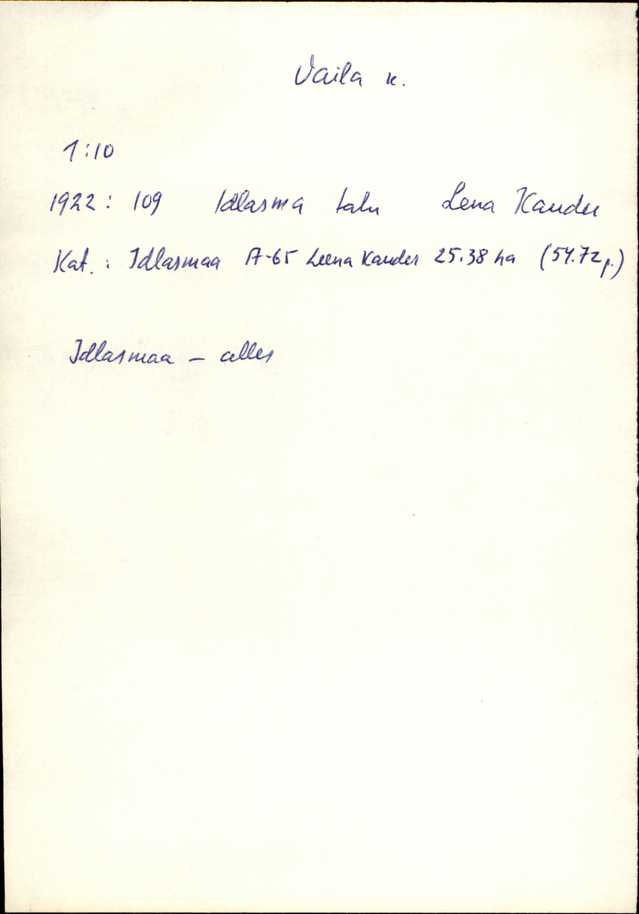 Vaila k.
1:10
1922: 109 Idlasma talu Lena Kander
Kat.: Idlasmaa A-65 Leena Kander 25.38 ha (54.72 p.)
Idlasmaa - alles